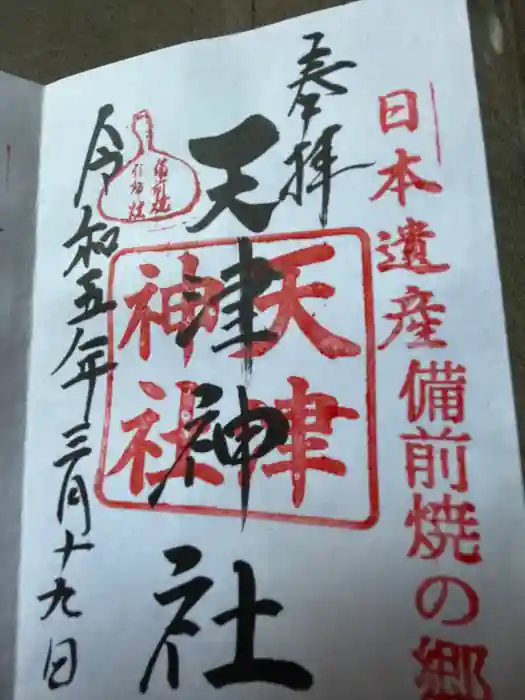 日本遺産備前焼の郷
奉拝
天津神社
天津
神社
備前焼
令和五年三月十九日